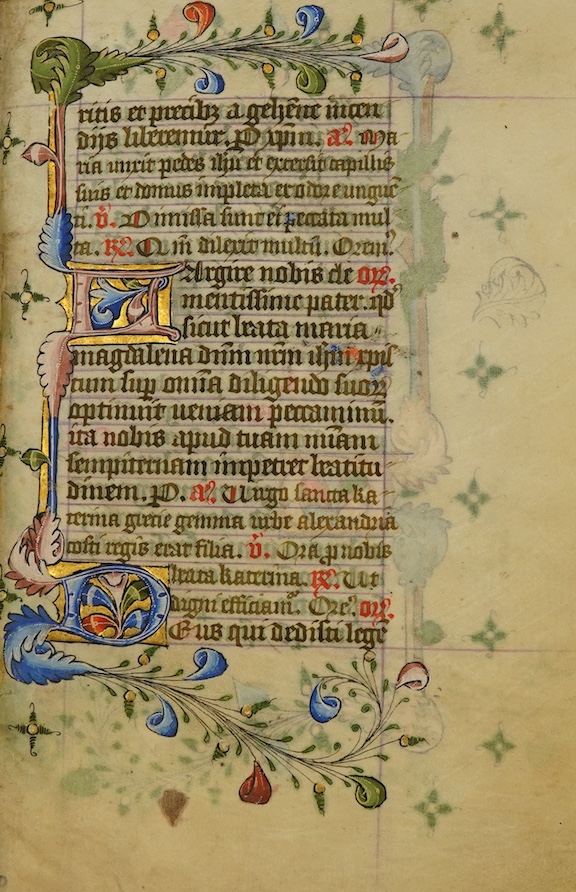 ritis et precibꝫ a gehēne incen
dijs liberemur. P xp̄m. an̄. Ma
ria unxit pedes ihū et extersit capillis
suis et domus impleta ex odore ungue
ti. v̄. Dimissa sunt ei peccata mul
ta. Rꝫ. Qm̄ dilexit multū. Orem9
Largire nobis cle or̄o.
mentissime pater. qd'
sicut beata maria
magdalena dn̄m nrm ihm xpis
tum sup om̄ia diligendo suoꝝ
optinuit ueniam peccaminū.
ita nobis apud tuam mīam
sempiternam impetret beatitu
dinem. P. an̄. Uirgo sancta ka
terina grecie gemma urbe alexandria
costi regis erat filia. v̄. Ora p nobis
beata katerina. Rꝫ. Ut
digni efficiam2. Ore9. or̄o.
Deus qui dedisti legē